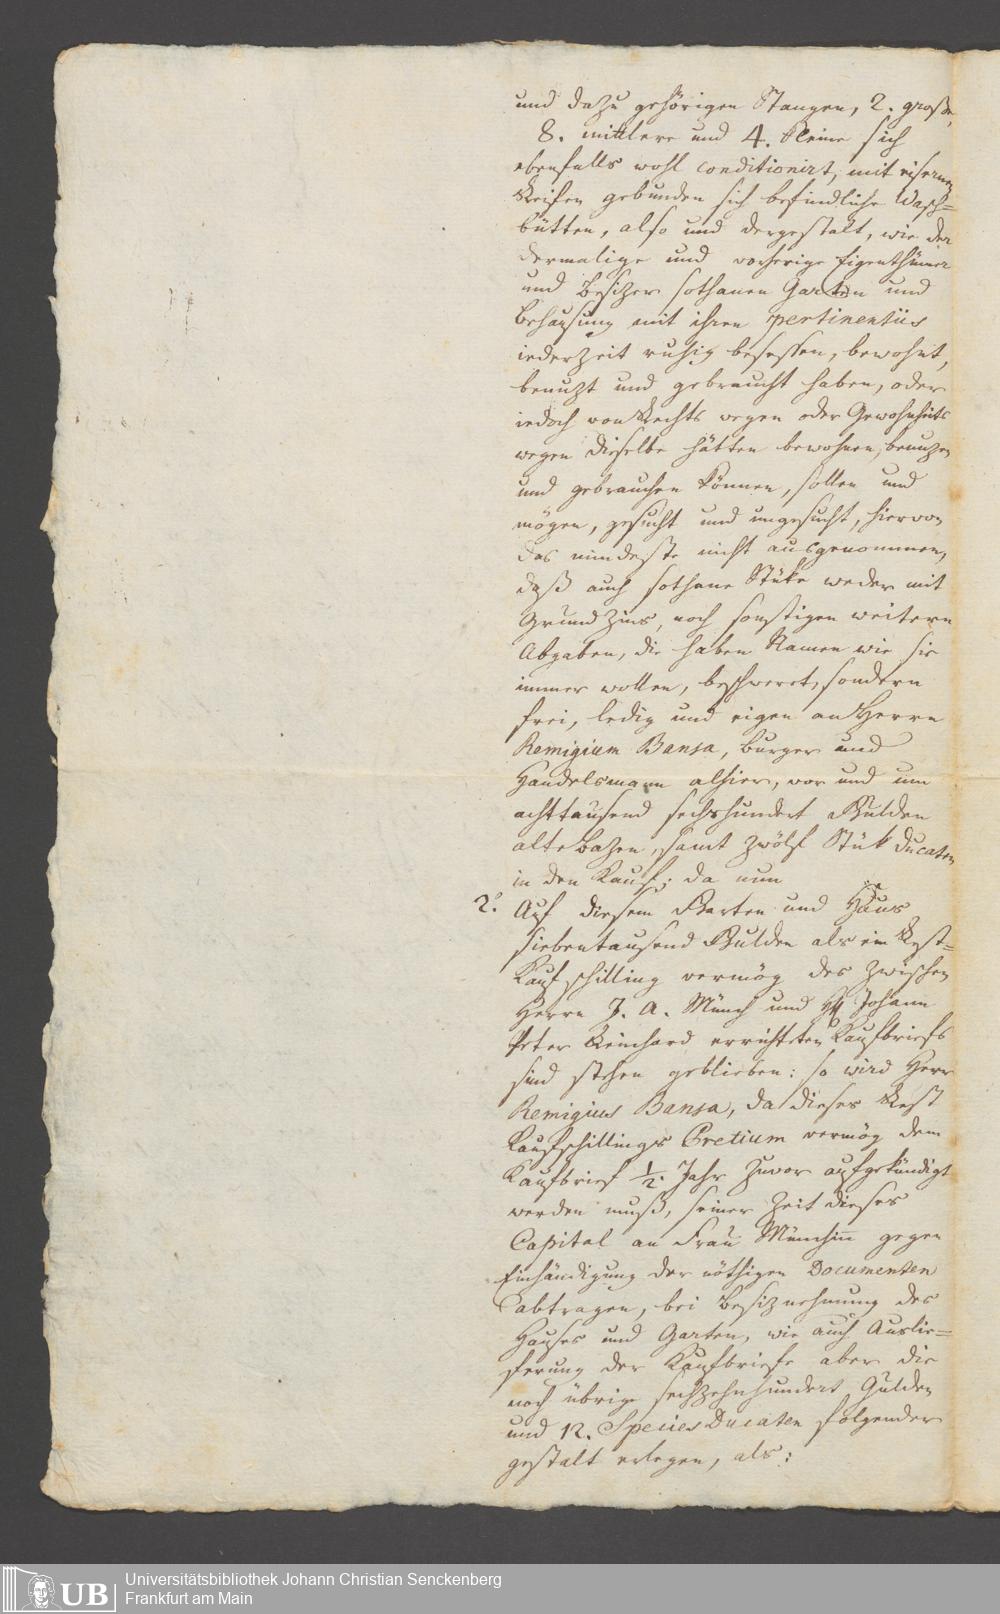 und dazu gehörigen Stangen, 2. große,
8. mittlere und 4. kleine sich
ebenfalls wohl conditionirt, mit eisernen
Reifen gebunden sich befindliche Wasch=
bütten, also und dergestalt, wie der
dermalige und vorherige Eigenthümer
und Besizer sothanen Garten und
Behausung mit ihren pertinentiis
iederzeit ruhig besessen, bewohnt,
benuzt und gebraucht haben, oder
iedoch von Rechts wegen oder Gewohnheits
wegen dieselbe hätten bewohnen, benuzen
und gebrauchen können, sollen und
mögen, gesucht und ungesucht, hiervon
das mindeste nicht ausgenommen,
daß auch sothane Stüke weder mit
Grundzins, noch sonstigen weitern
Abgaben, die haben Namen wie sie
immer wollen, beschweret, sondern
frei, ledig und eigen an Herrn
Remigium Bansa, burger und
Handelsmann alhier, vor und um
achttausend sechshundert Gulden
alte Bazen, samt zwölf Stük Ducaten
in den Kauf; da nun
2. Auf diesem Garten und Haus
siebentausend Gulden als ein Rest=
Kaufschilling vermög des zwischen
Herrn J. A. Münch und H Johann
Peter Reinhard errichteten Kaufbriefs
sind stehen geblieben: so wird Herr
Remigius Bansa, da dieses Rest
Kaufschillings Pretium vermög dem
Kaufbrief 1/2. Jahr zuvor aufgekündigt
werden muß, seiner Zeit dieses
Capital an Frau Münchin gegen
Einhändigung der nöthigen Documenten
abtragen, bei Besiznehmung des
Hauses und Garten, wie auch Auslie=
ferung der Kaufbriefe aber die
noch übrige sechzehnhundert Gulden
und 12. Species Ducaten folgender
gestalt erlegen, als:
UB Universitätsbibliothek Johann Christian Senckenberg
Frankfurt am Main